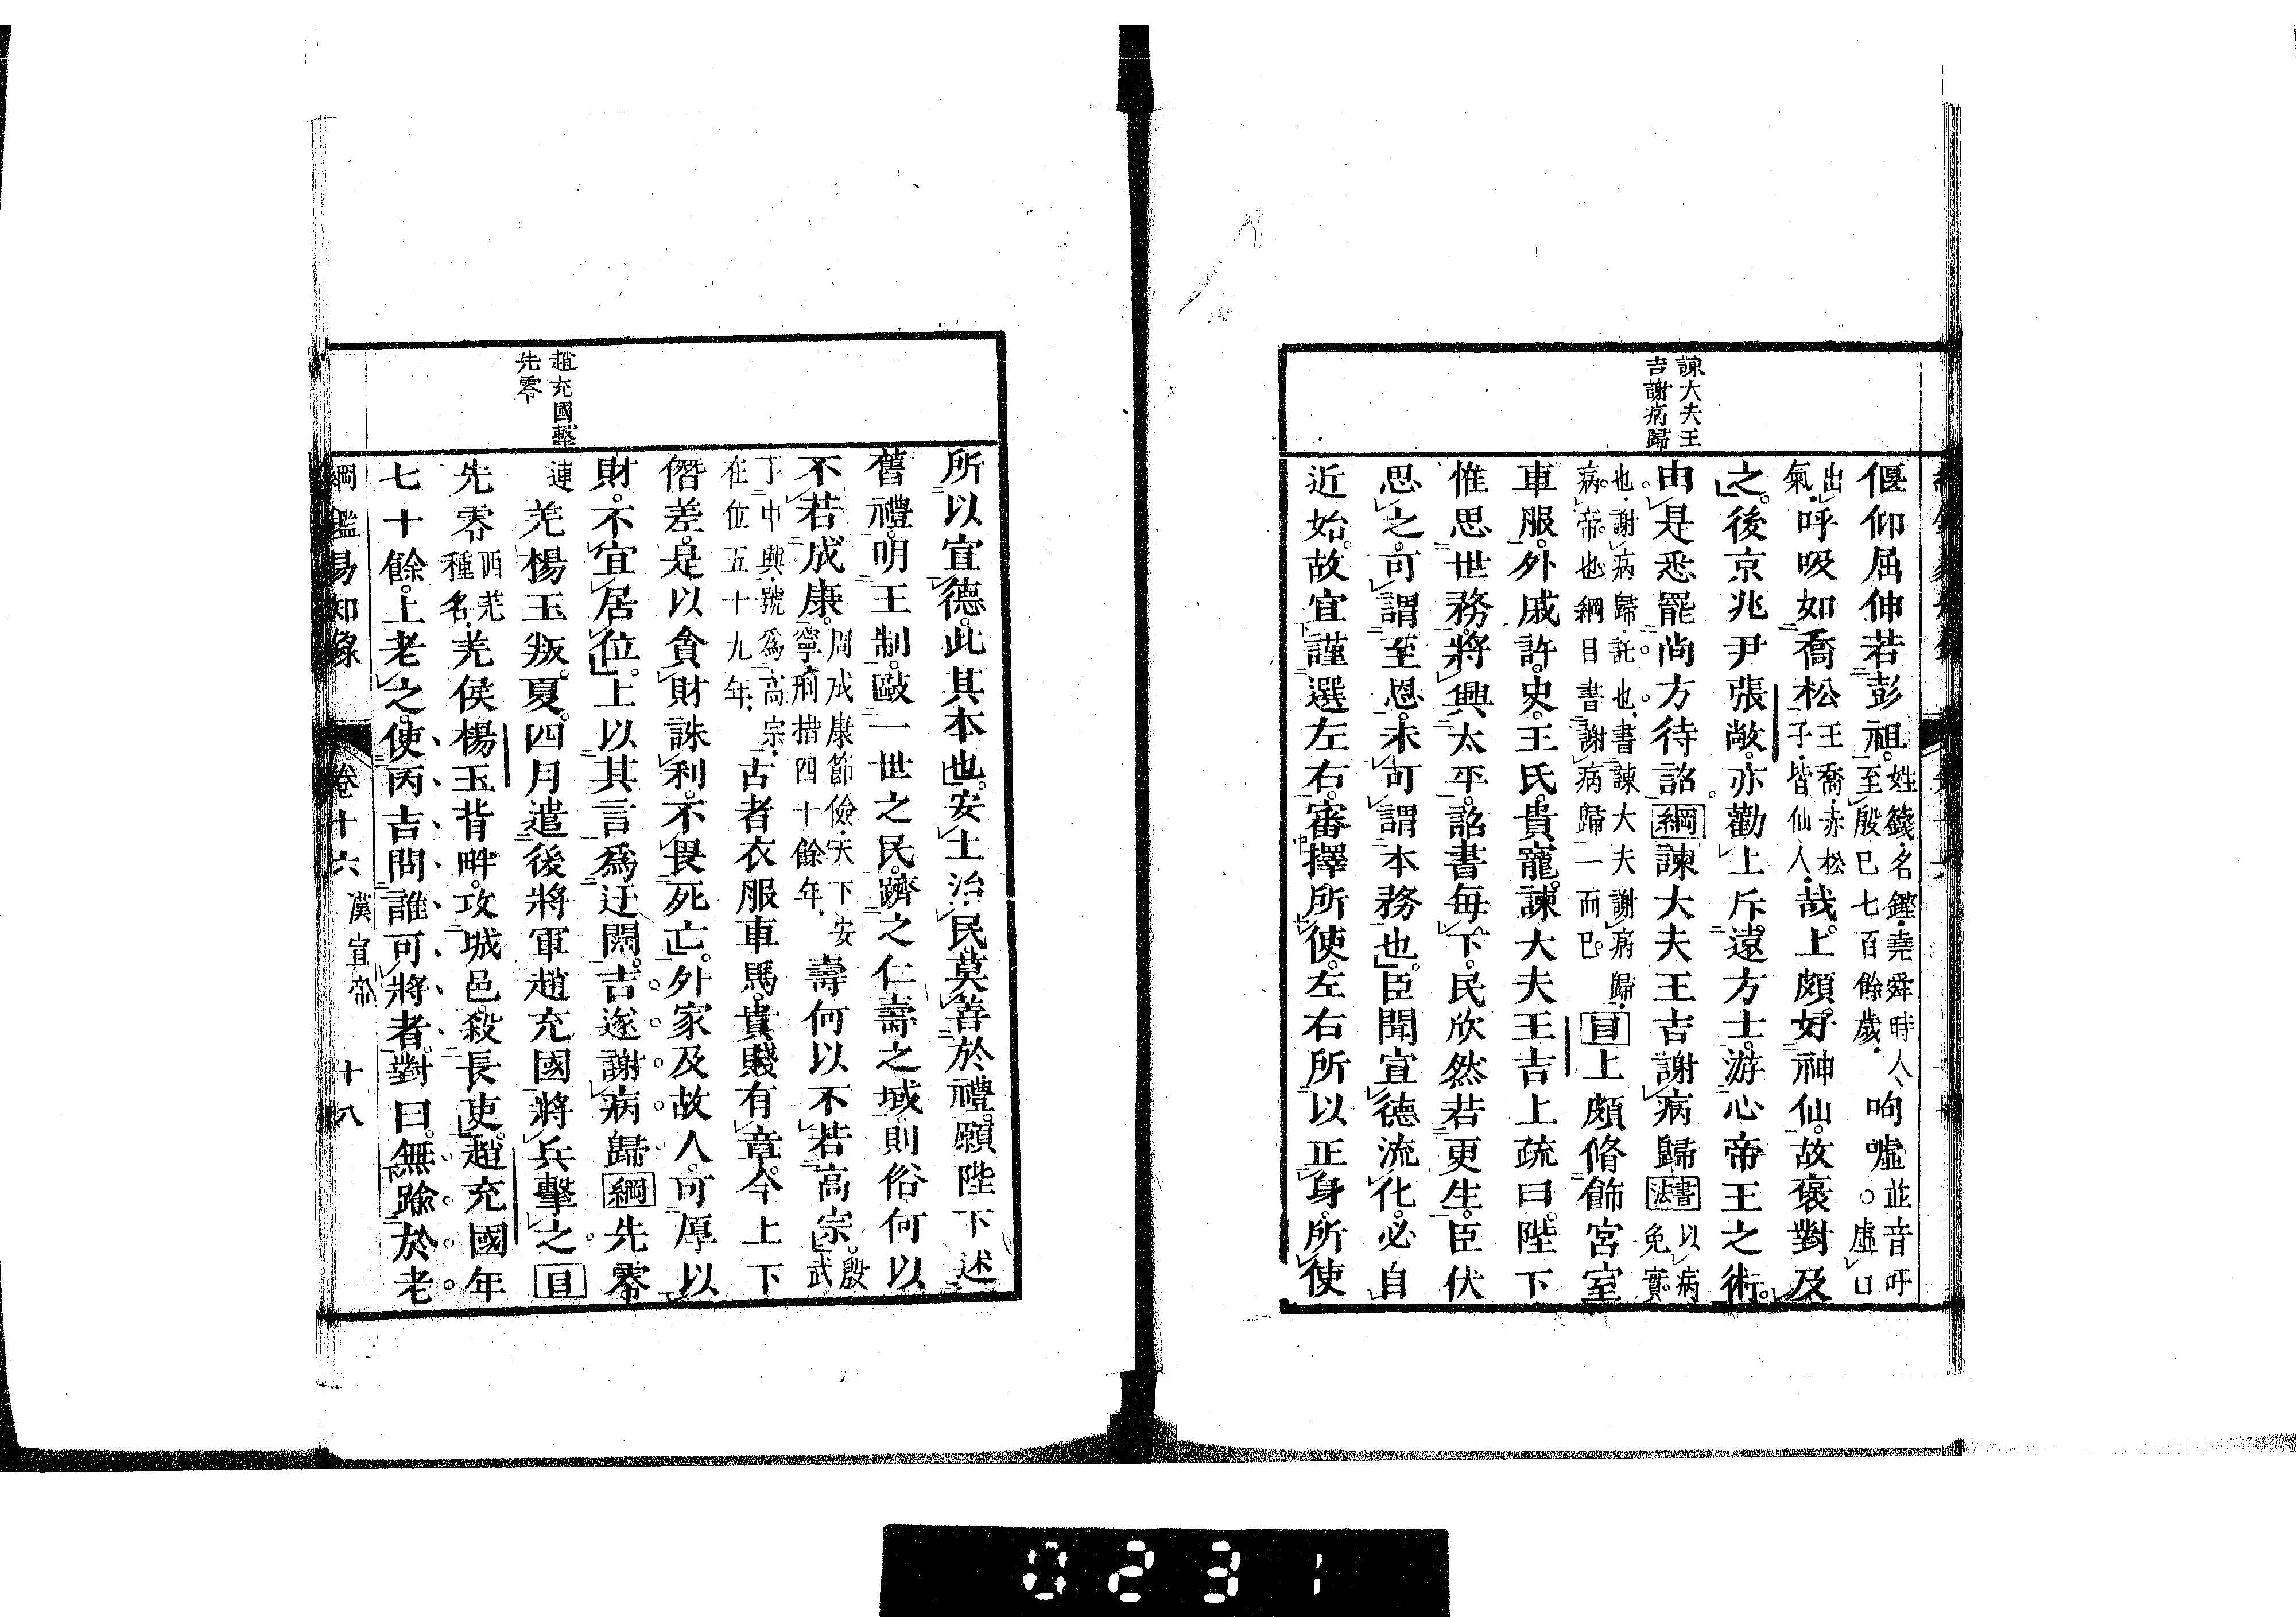 諫大夫王
吉謝病歸
偃仰屈伸若彭祖姓籛名鏗堯舜時人至殷已七百餘歲呴噓並音吁虛口
出氣呼吸如喬松王喬赤松子皆仙人哉上頗好神仙故褒對及
之後京兆尹張敞亦勸上斥遠方士游心帝王之術
由是悉罷尚方待詔綱諫大夫王吉謝病歸書法以病免實
也謝病歸託也書諫大夫謝病歸病帝也綱目書謝病歸一而已目上頗脩飾宮室
車服外戚許史王氏貴寵諫大夫王吉上疏曰陛下
惟思世務將興太平詔書每下民欣然若更生臣伏
思之可謂至恩未可謂本務也臣聞宣德流化必自
近始故宜謹選左右審擇所使左右所以正身所使
趙充國擊
先零
所以宣德此其本也安上治民莫善於禮願陛下述
舊禮明王制敺一世之民躋之仁壽之域則俗何以
不若成康周成康節儉天下安寧刑措四十餘年壽何以不若高宗殷武
丁中興號爲高宗在位五十九年古者衣服車馬貴賤有章今上下
僭差是以貪財誅利不畏死亡外家及故人可厚以
財不宜居位上以其言爲迂闊吉遂謝病歸綱先零
連羌楊玉叛夏四月遣後將軍趙充國將兵擊之目
先零西羌種名羌侯楊玉背畔攻城邑殺長吏趙充國年
七十餘上老之使丙吉問誰可將者對曰無踰於老
綱鑑易知錄 卷十六 漢宣帝 十八
0231